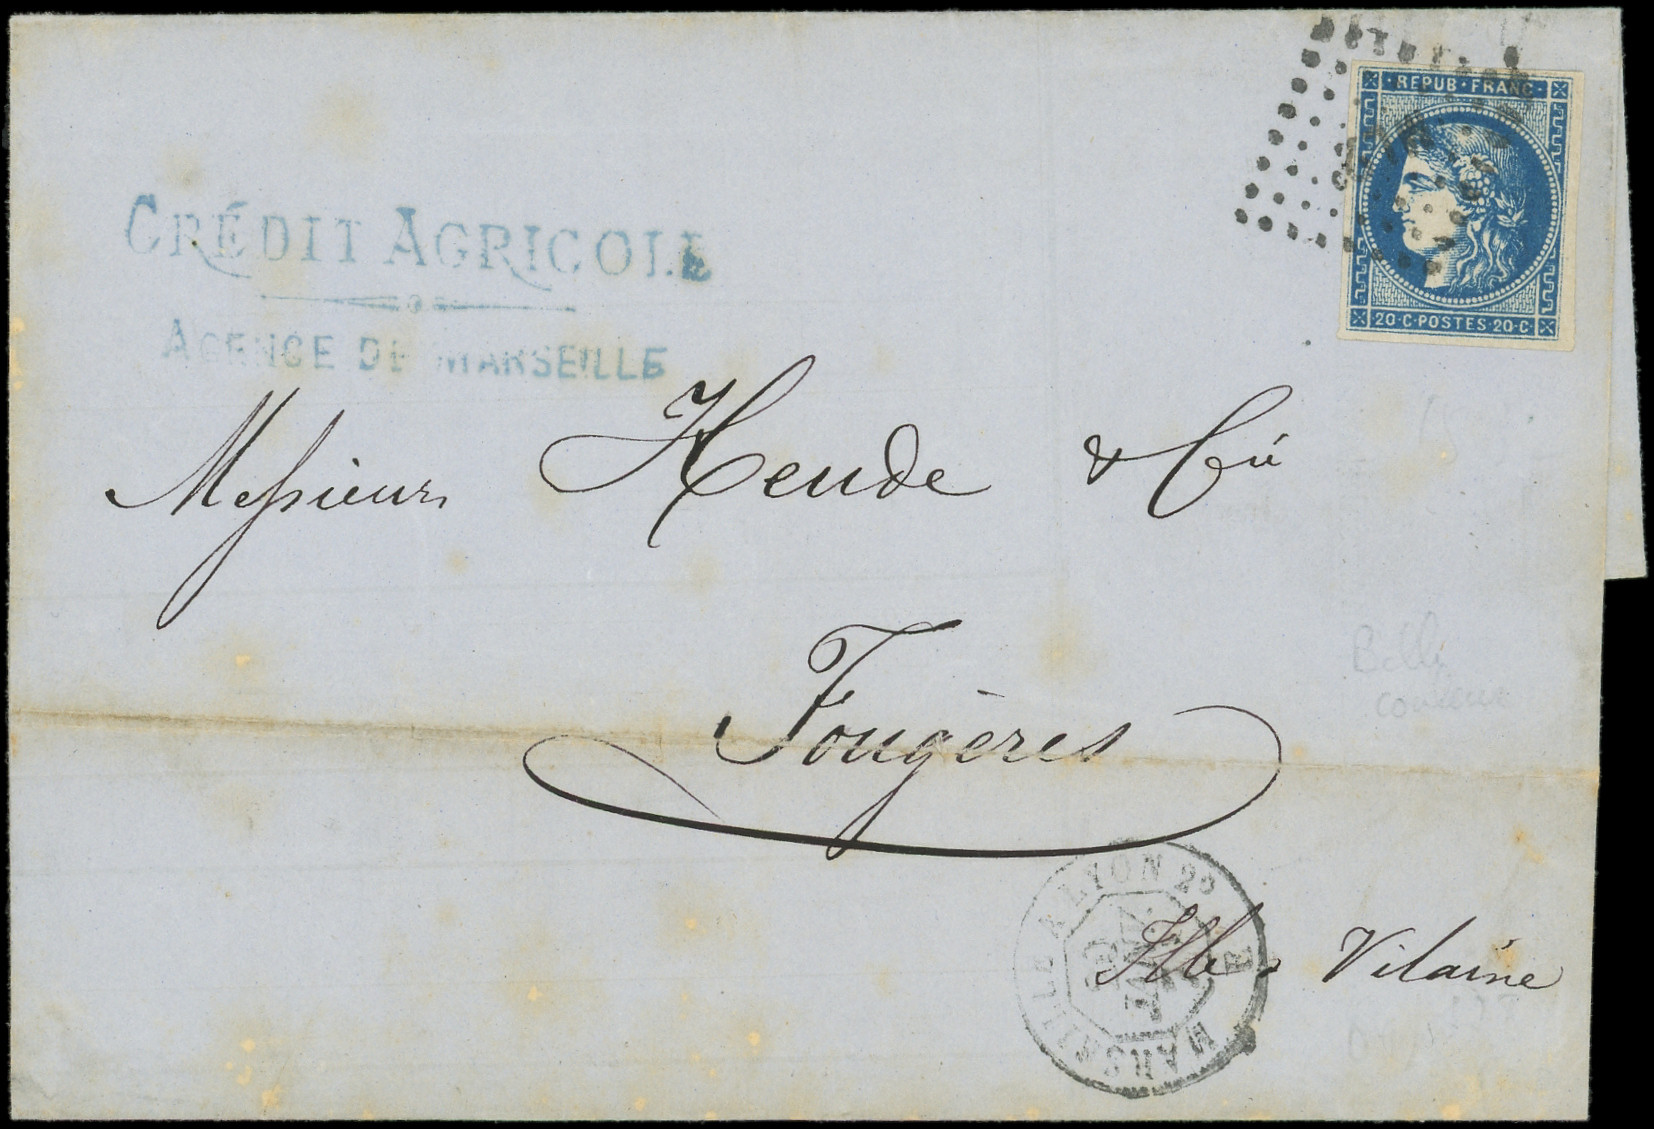 REPUB · FRANC ·
20 · C · POSTES · 20 · C
CRÉDIT AGRICOLE
AGENCE DE MARSEILLE
Messieurs Heude & Cie
Fougères
Ille & Vilaine
MARSEILLE A LYON 2º
JANV.
Belle
couleur